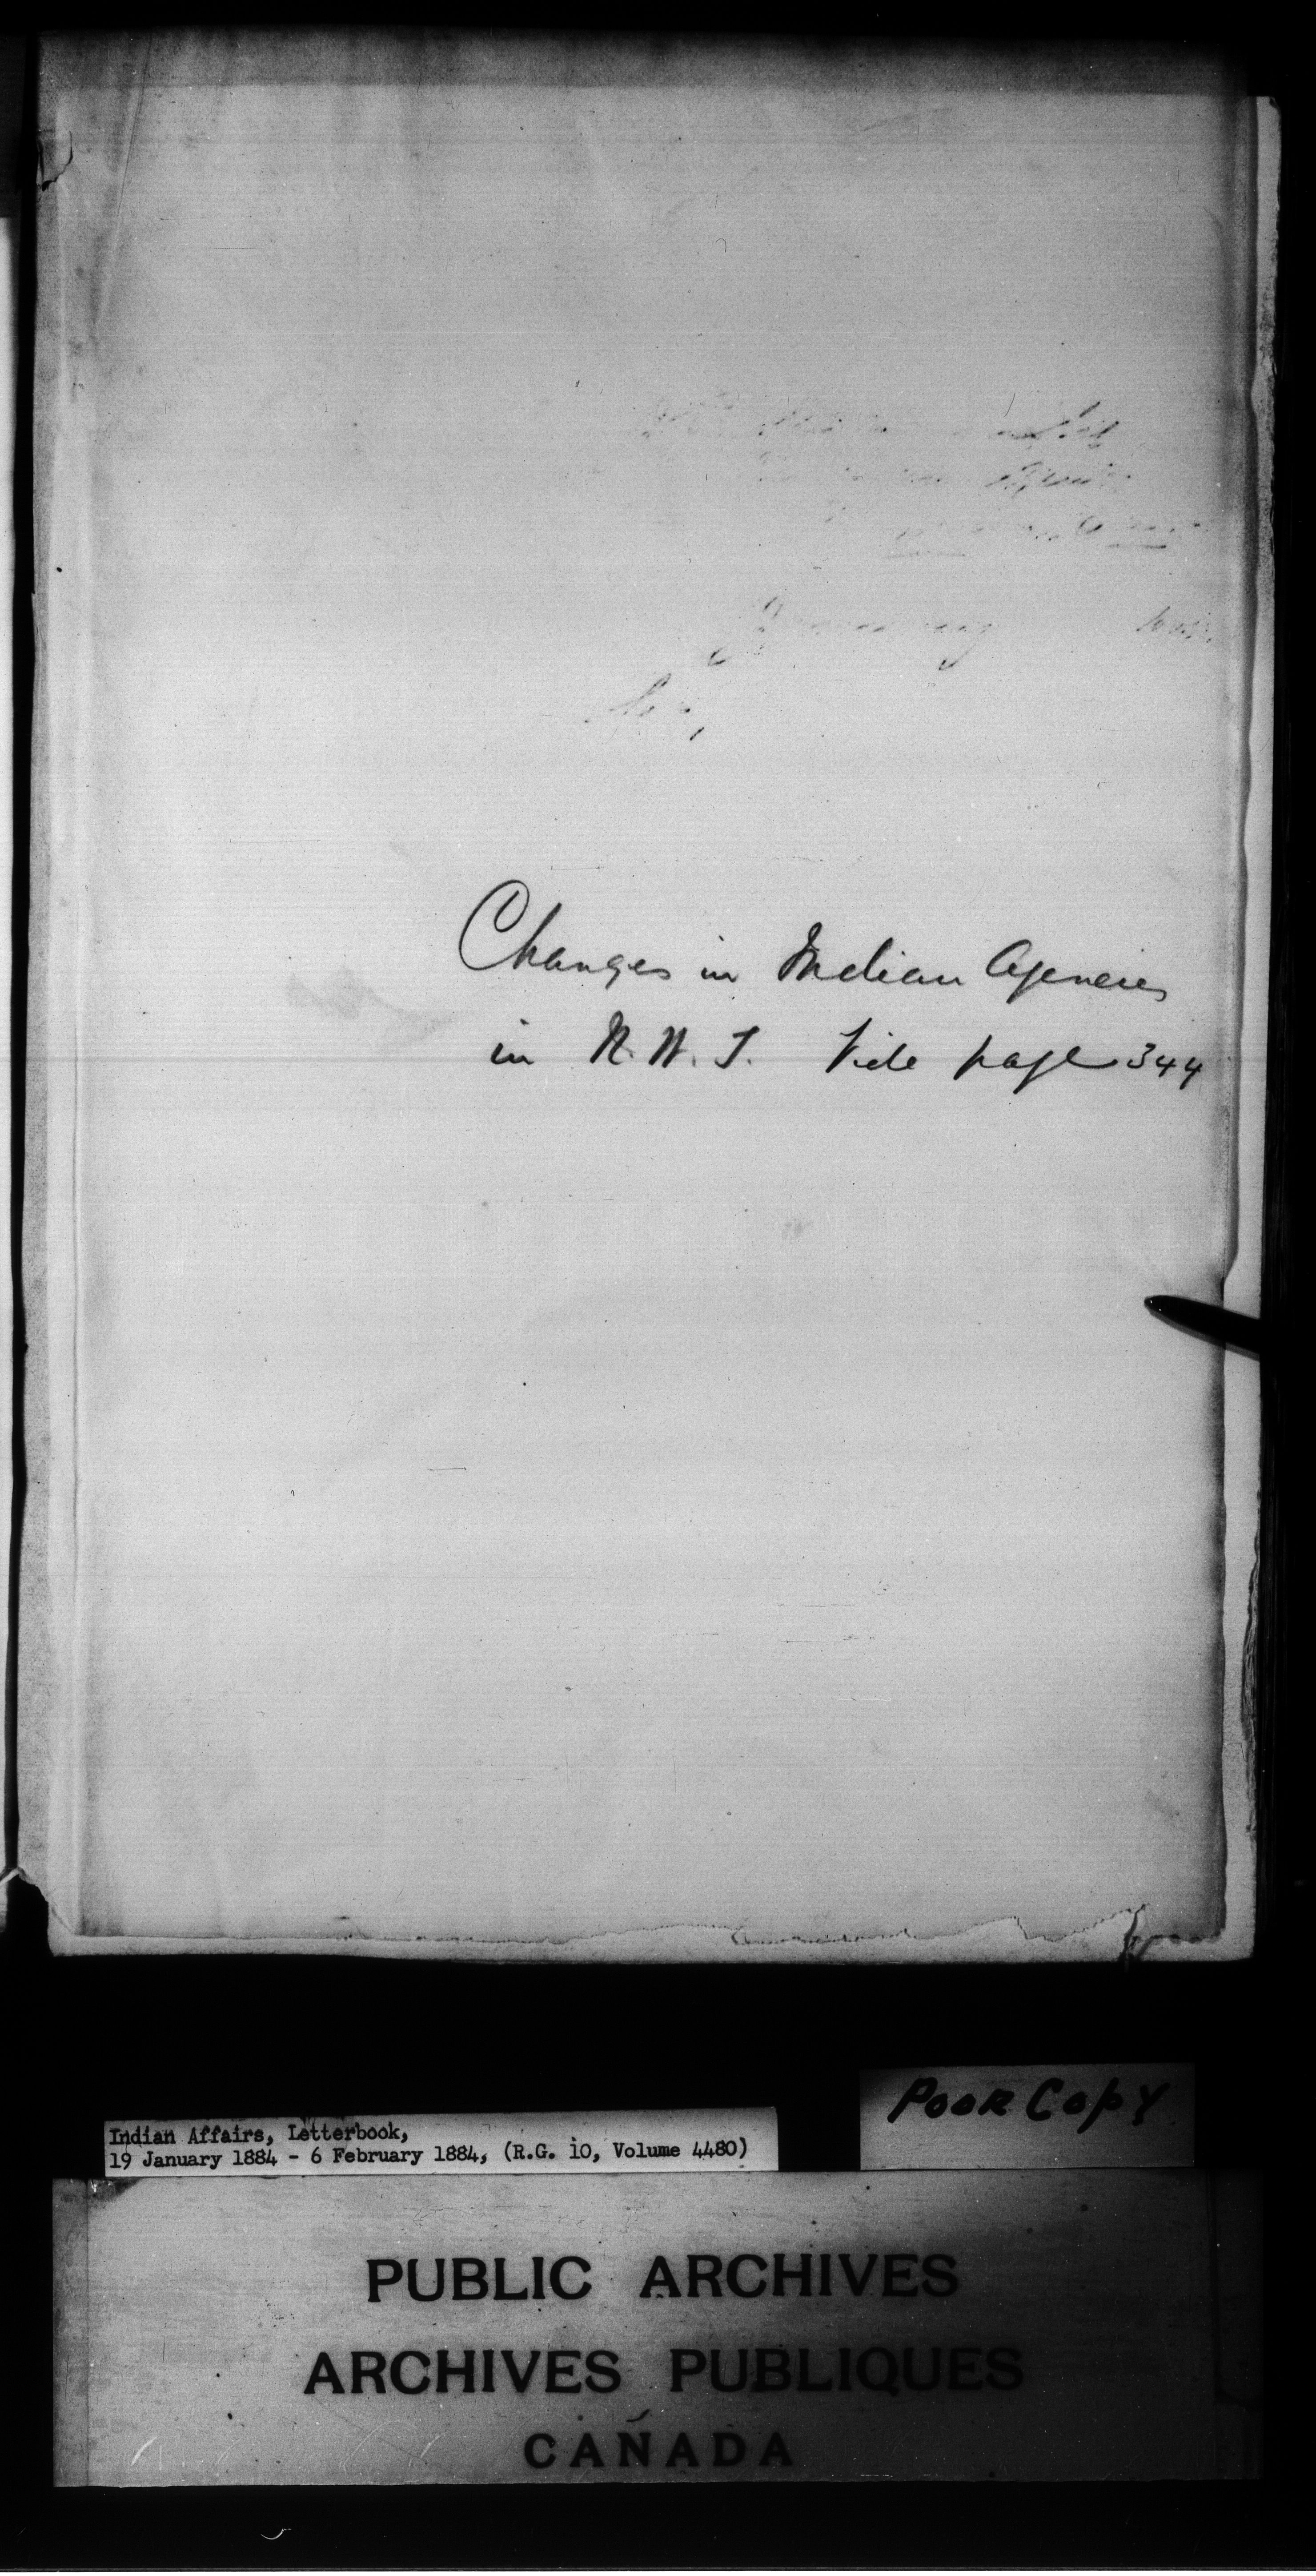 Changes in Indian Agencies
in N. W. T. Vide page 344
Poor Copy
Indian Affairs, Letterbook,
19 January 1884 - 6 February 1884, (R.G. 10, Volume 4480)
PUBLIC ARCHIVES
ARCHIVES PUBLIQUES
CANADA